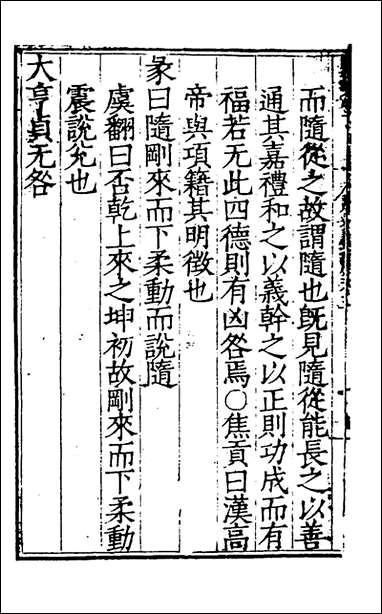 而隨從之故謂隨也旣見隨從能長之以善
通其嘉禮和之以義幹之以正則功成而有
福若无此四德則有凶咎焉○焦貢曰漢高
帝與項籍其明徵也
彖曰隨剛來而下柔動而說隨
虞翻曰否乾上來之坤初故剛來而下柔動
震說兊也
大亨貞无咎